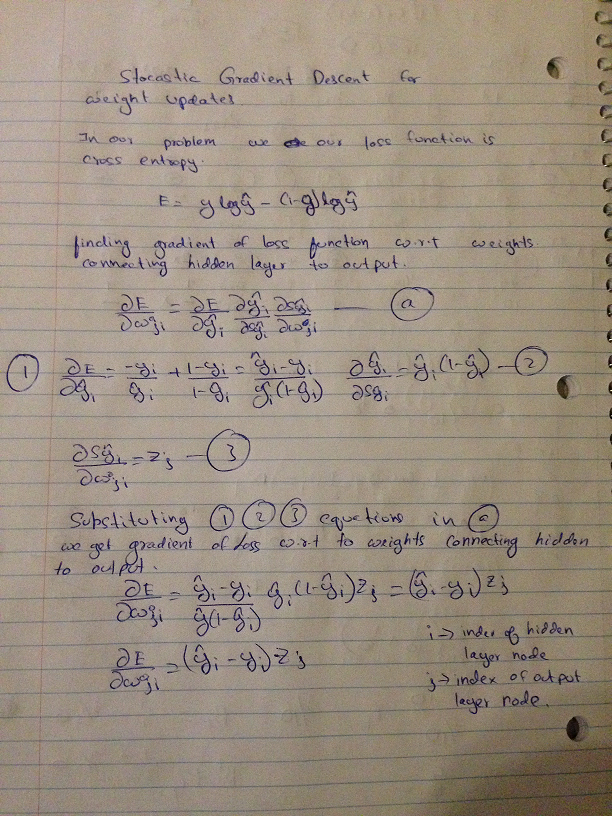 Stocastic Gradient Descent for
weight updates.
In our problem we our loss function is
cross entropy.
E = y log ŷ - (1-y) log ŷ
finding gradient of loss function w.r.t weights
connecting hidden layer to output.
∂E/∂wji = ∂E/∂ŷi ∂ŷi/∂sŷi ∂sŷi/∂wji — (a)
(1) ∂E/∂ŷi = -yi/ŷi + 1-yi/1-ŷi = ŷi-yi/ŷi(1-ŷi) ∂ŷi/∂sŷi = ŷi(1-ŷi) — (2)
∂sŷi/∂wji = zj — (3)
Substituting (1) (2) (3) equations in (a)
we get gradient of loss w.r.t to weights connecting hidden
to output.
∂E/∂wji = ŷi-yi/ŷ(1-ŷi) ŷi(1-ŷi)zj = (ŷi-yi)zj
i → index of hidden
layer node
∂E/∂wji = (ŷi-yi)zj
j → index of output
layer node.